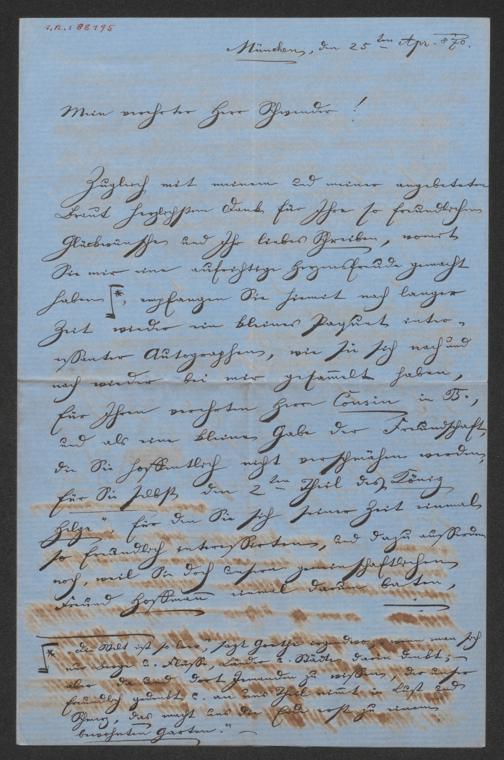 I.N. 88195
München, den 25ten Apr. 870.
Mein verehrter Herr Schwender!
Zugleich mit meinem und meiner angebeteten
Braut herzlichsten Dank für Ihre so freundlichen
Glückwünsche und Ihr liebes Schreiben, womit
Sie mir eine aufrichtige Herzensfreude gemacht
haben [*, empfangen Sie hiemit nach langer
Zeit wieder ein kleines Paquet inter-
essanter Autographen, wie sie sich nach und
nach wieder bei mir gesammelt haben,
für Ihren verehrten Herrn Cousin in B.,
und als eine kleine Gabe der Freundschaft,
die Sie hoffentlich nicht verschmähen werden,
für Sie selbst den 2ten Theil des "König
Helge", für den Sie sich seiner Zeit einmal
so freundlich interessirten, und dazu
noch, weil Sie doch unsern gemeinschaftlichen
Freund Hoffmann einmal darum baten,
[* "Die Welt ist so leer," sagt Goethe irgendwo, "wenn man sich
nur Berge u. Flüsse, Länder u. Städte darin denkt;
aber da und dort Jemanden zu wissen, der unser
freundlich gedenkt u. an uns Theil nimmt in Lust und
Schmerz, das macht uns die Erde erst zu einem
bewohnten Garten." –